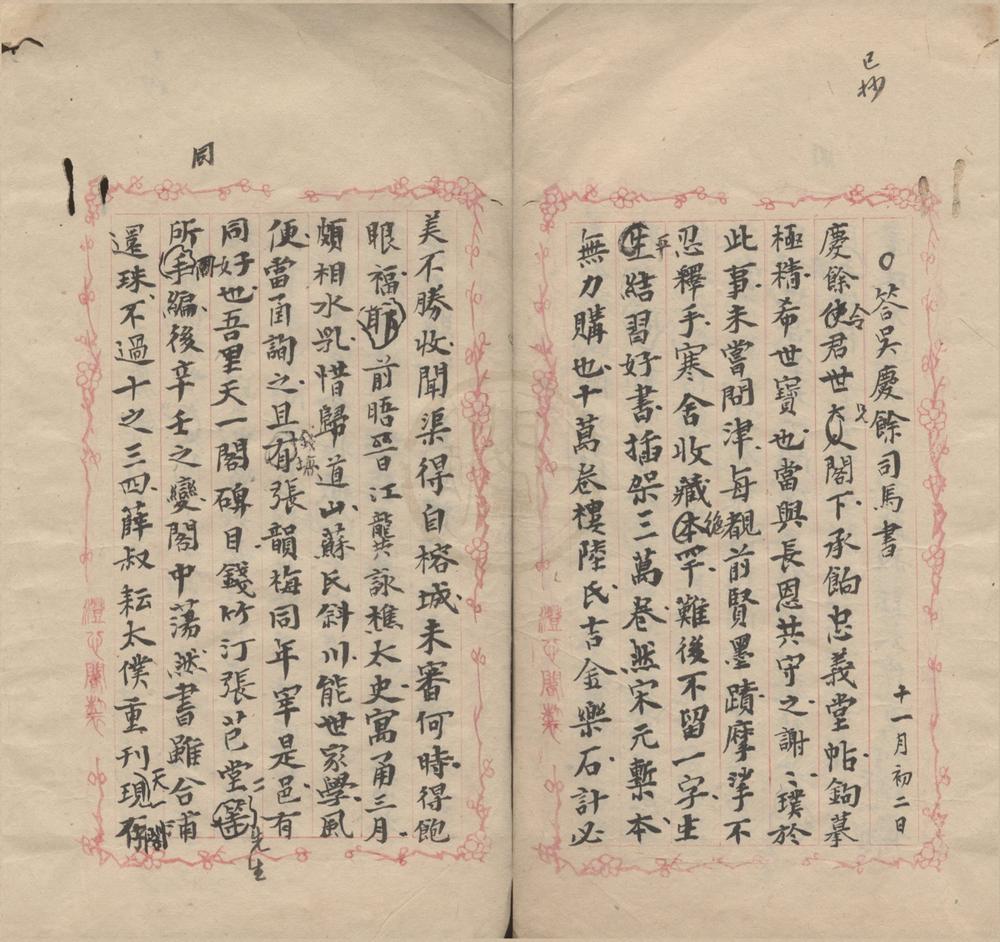 已抄
答吳慶餘司馬書
十一月初二日
慶餘使君世大人閣下承餉忠義堂帖鉤摹
令
兄
極精希世寶也當與長恩共守之謝〻璞於
此事未嘗問津每覩前賢墨蹟摩挲不
忍釋手寒舍收藏本罕難後不留一字生
絶
生結習好書插架三萬卷然宋元槧本
平
無力購也十萬卷樓陸氏吉金樂石計必
美不勝收聞渠得自榕城未審何時得飽
眼福前晤晉江龔詠樵太史寓甬三月
頗相水乳惜歸道山蘇氏斜川能世家學風
便當函詢之且有張韻梅同年宰是邑有
錢塘
同好也吾里天一閣碑目錢竹汀張芑堂
二
先生
所手編後辛壬之變閣中蕩然書雖合浦
同
還珠不過十之三四薛叔耘太僕重刊現存
天一閣
澄心閣製
澄心閣製